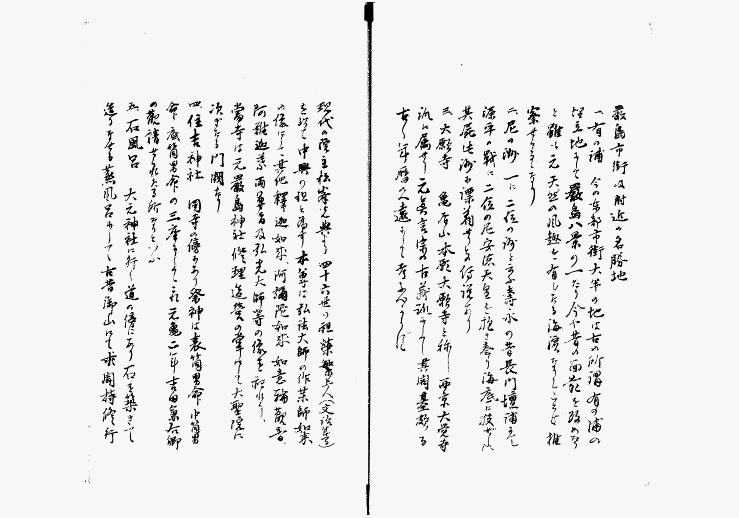 嚴島市街及附近ノ名勝地
一 有ノ浦 今ノ東部市街大半ノ地は古の所謂有の浦の
埋立地にして嚴島八景の一たり今や昔の面影を改めたり
と雖も元天然の風趣を有したる海濱なりしことを推
察せらるゝなり
二 尼の洲 一に二位の洲と云ふ壽永の昔長門壇浦
源平の戰に二位の尼安德天皇を抱き奉り海底に投せ
其屍此洲に漂着せりとの傳説あり
三 大願寺 亀居山本願大願寺と称し西京大覚寺
派に属せり元真言宗の古義派にして其開基頗る
古く年暦久遠にして
現代の院主 四十六世の祖
を以て中興の祖と為す本尊は弘法大師の作薬師如来
の像にして其他釋迦如来、阿彌陀如来、如意輪觀音、
阿難迦葉両尊者及弘法大師等の像を祀れり、
當寺は元嚴島神社修理造營の掌りて大聖院に
次ぎたる門閥なり
四 住吉神社 同寺の傍にあり祭神は表筒男命中筒男
命底筒男命の三座にして元亀二年吉田兼右卿
の勧請せられたる所なりといふ
五 石風呂 大元神社に行く道の傍にあり石を築きて
造りたる蒸風呂にして古昔當山にて求聞持修行